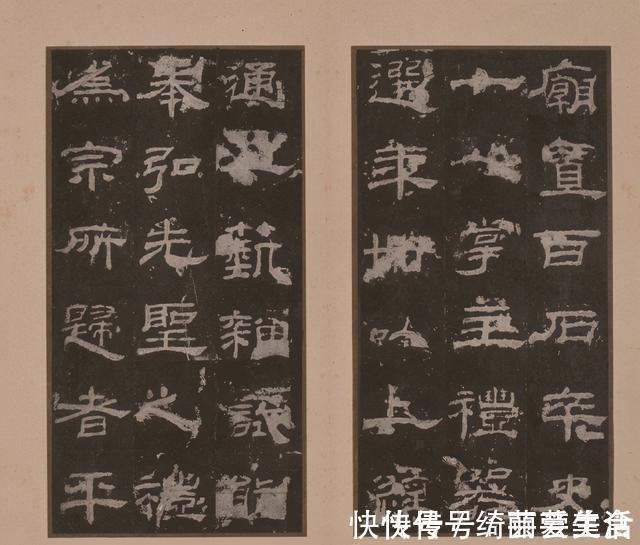 廟置百石卒史
一人掌主禮器
選年卌以上經
通一藝雜試能
奉弘先聖之禮
為宗所歸者平
快传号